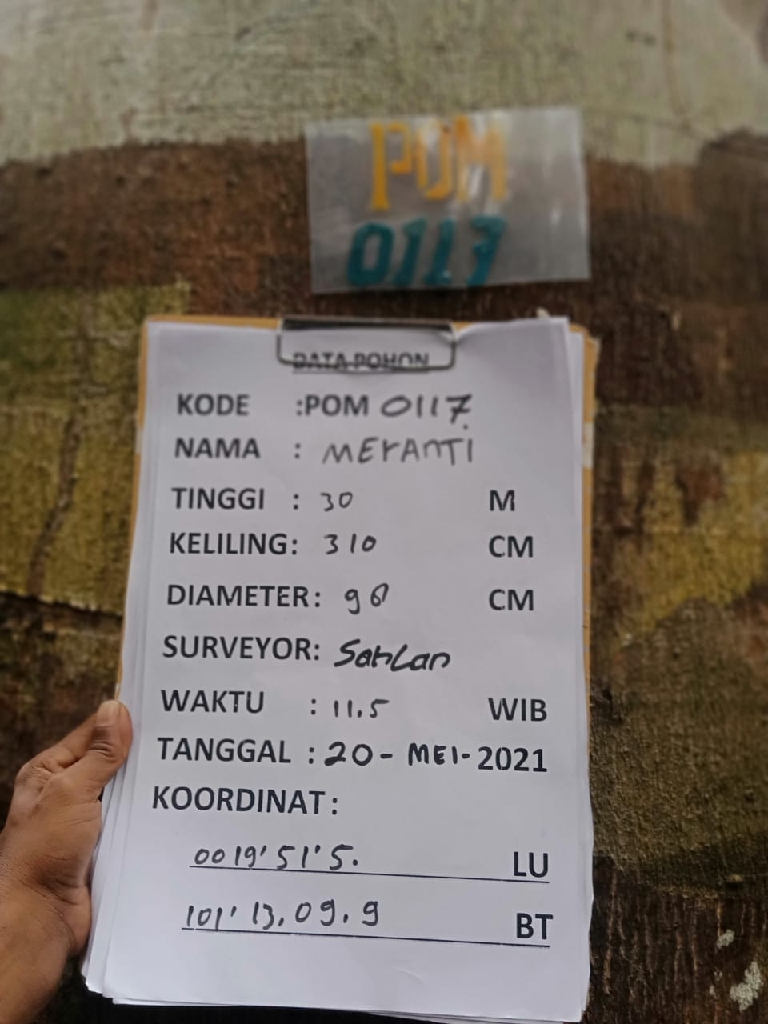 POM
0117
DATA POHON
KODE :POM 0117
NAMA : MErANTI
TINGGI : 30 M
KELILING: 310 CM
DIAMETER: 98 CM
SURVEYOR: Sahlan
WAKTU : 11.5 WIB
TANGGAL : 20 - MEI - 2021
KOORDINAT:
0019'51'5. LU
101' 13.09.9 BT